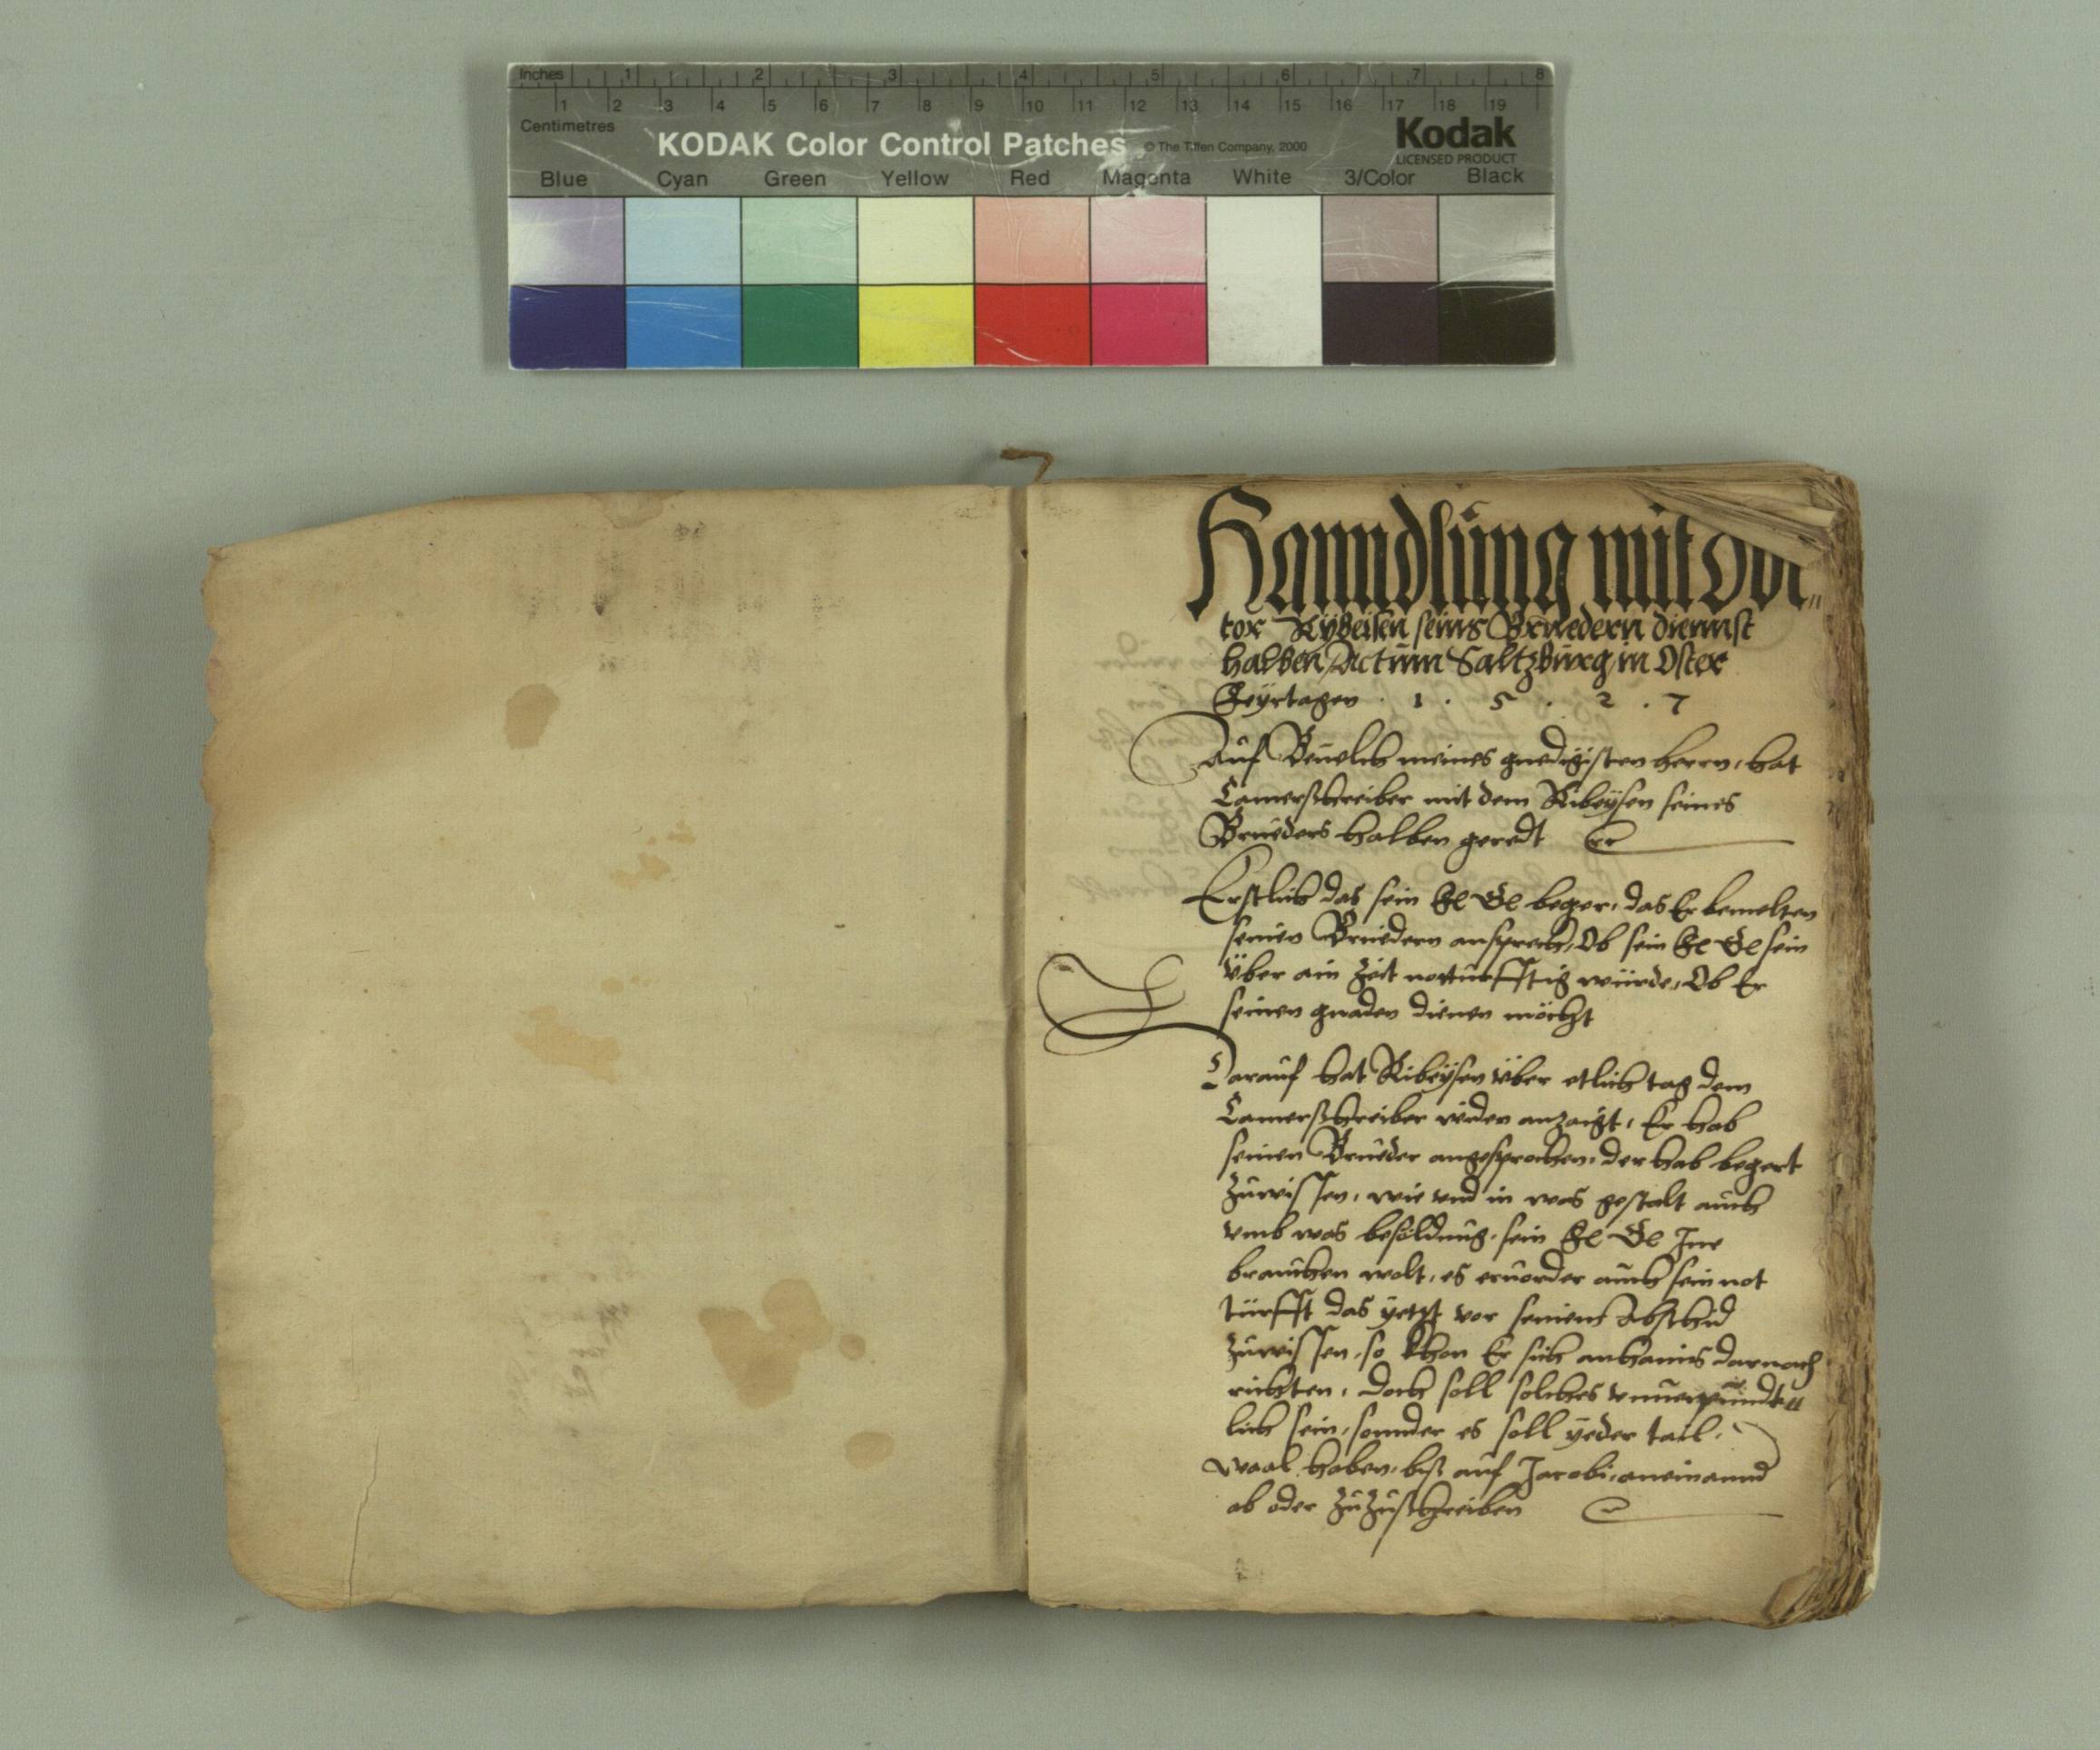 Inches 1 2 3 4 5 6 7 8
1 2 3 4 5 6 7 8 9 10 11 12 13 14 15 16 17 18 19
Centimetres
KODAK Color Control Patches © The Tiffen Company, 2000 Kodak
LICENSED PRODUCT
Blue Cyan Green Yellow Red Magenta White 3/Color Black
Hanndlung mit Doc„
tor Rybeisen seins Bruedern diennst
halben, Actum Saltzburg in Oster
Feyrtagen . 1 . 5 . 2 . 7
Auf Beuelch meines gnedigisten herrn, hat
Camerschreiber mit dem Ribeysen seines
Brueders halben geredt
Erstlich das sein Fl Gl beger, das Er bemelten
seinen Bruedern ansprech, Ob sein Fl Gl sein
über ain Zeit notturfftig würde, Ob Er
seinen gnaden dienen möcht
Darauf hat Ribeysen über etlich tag dem
Camerschreiber widen anzaigt, Er hab
seinen Brueder angesprochen, der hab begert
zuwissen, wie vnd in was gestalt auch
vmb was besöldung, sein Fl Gl Jne
brauchen wolt, es eruorder auch sein not
türfft das yetzt vor seinem Abschid
zuwissen, so khon Er sich anhaims darnach
richten, doch soll solches vnuerpündt„
lich sein, sonnder es soll yeder tail,
waal haben, biß auf Jacobi, aneinannd
ab oder zuzuschreiben